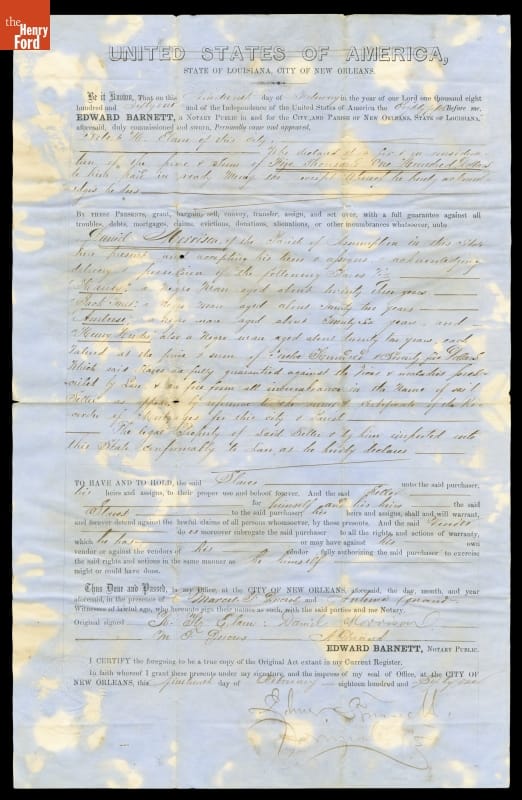 the
Henry
Ford
UNITED STATES OF AMERICA,
STATE OF LOUISIANA, CITY OF NEW ORLEANS.
Be it Known, That on this day of February in the year of our Lord one thousand eight
hundred and and of the Independence of the United States of America the Before me,
EDWARD BARNETT, a NOTARY PUBLIC in and for the CITY AND PARISH OF NEW ORLEANS, STATE OF LOUISIANA,
aforesaid, duly commissioned and sworn, Personally came and appeared,
H. Elam of this city
Who declared that for and in considera
tion of the price & sum of Five Thousand One Hundred Dollars
to him paid in ready Money the receipt whereof he hereby acknow
ledges he does
BY THESE PRESENTS, grant, bargain, sell, convey, transfer, assign, and set over, with a full guarantee against all
troubles, debts, mortgages, claims, evictions, donations, alienations, or other incumbrances whatsoever, unto
Daniel Morrison of the Parish of Assumption in this State
here present and accepting for his heirs & assigns & acknowledging
delivery & possession of the following Slaves Viz
a Negro man aged about twenty three years
a Negro man aged about twenty two years
Ambrose a Negro man aged about Twenty six years and
Henry also a Negro man aged about twenty two years, each
valued at the price & sum of Twelve Hundred & Seventy five Dollars
Which said Slaves are fully guaranteed against the Vices & maladies pres
cribed by Law & are free from all incumbrance in the Name of said
Seller as appears by reference to the Certificate of the Re
corder of Mortgages for this city & Parish
The legal Property of Said Seller & by him imported into
this State conformably to Law as he hereby declares
TO HAVE AND TO HOLD, the said Slaves unto the said purchaser,
his heirs and assigns, to their proper use and behoof forever. And the said Seller
for himself and his heirs the said
Slaves to the said purchaser his heirs and assigns, shall and will warrant,
and forever defend against the lawful claims of all persons whomsoever, by these presents. And the said Vendor
does moreover subrogate the said purchaser to all the rights and actions of warranty,
which he has or may have against his own
vendor or against the vendors of his vendor fully authorizing the said purchaser to exercise
the said rights and actions in the same manner as he himself
might or could have done.
Thus Done and Passed, in my Office, at the CITY OF NEW ORLEANS, aforesaid, the day, month, and year
aforesaid, in the presence of Marcel T. Ducros and Antoine Durand
Witnesses of lawful age, who hereunto sign their names as such, with the said parties and me Notary.
Original signed H. Elam Daniel Morrison
M T Ducros A Durand
EDWARD BARNETT, NOTARY PUBLIC.
I CERTIFY the foregoing to be a true copy of the Original Act extant in my Current Register.
In faith whereof I grant these presents under my signature, and the impress of my seal of Office, at the CITY
OF NEW ORLEANS, this day of February eighteen hundred and